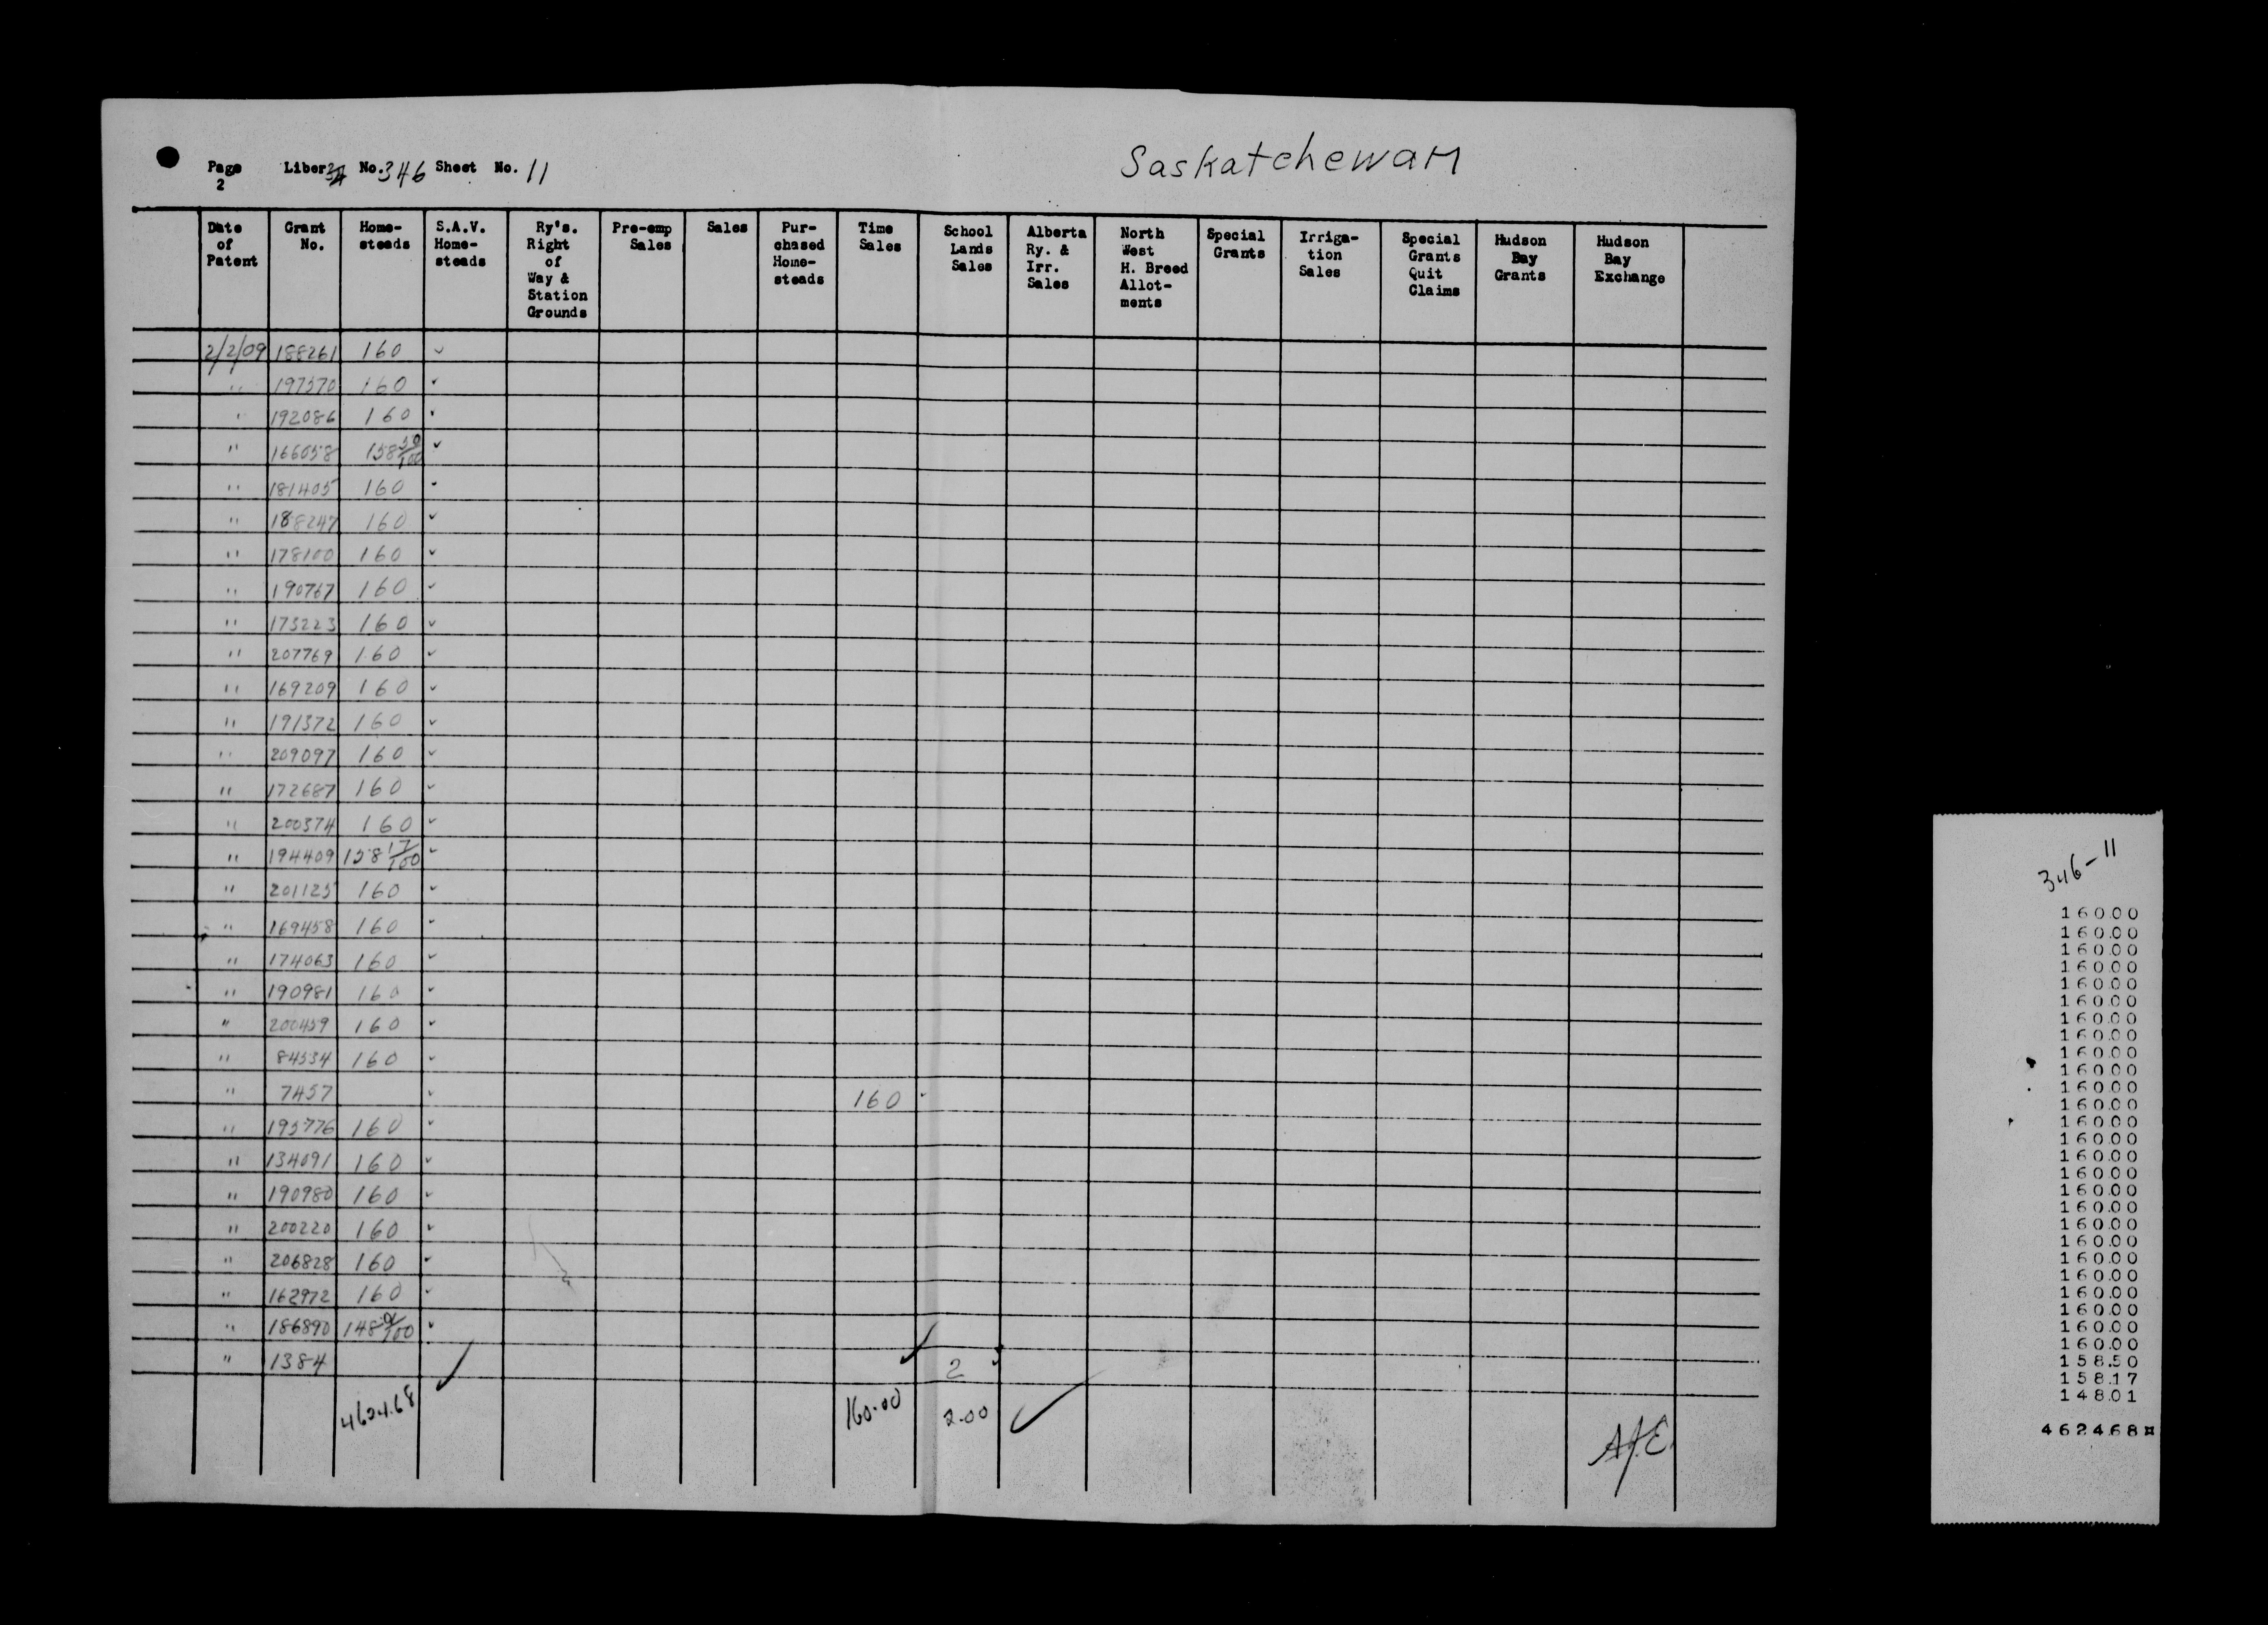 Saskatchewan
Page 2 Liber No. 346 Sheet No. 11
Date of Patent | Grant No. | Home-steads | S.A.V. Home-steads | Ry's. Right of Way & Station Grounds | Pre-emp Sales | Sales | Pur-chased Home-steads | Time Sales | School Lands Sales | Alberta Ry. & Irr. Sales | North West H. Breed Allot-ments | Special Grants | Irriga-tion Sales | Special Grants Quit Claims | Hudson Bay Grants | Hudson Bay Exchange
2/2/09 188261 160 ✓
" 197570 160 ✓
" 192086 160 ✓
" 166058 158 50/100 ✓
" 181405 160 ✓
" 188247 160 ✓
" 178100 160 ✓
" 190767 160 ✓
" 175223 160 ✓
" 207769 160 ✓
" 169209 160 ✓
" 191372 160 ✓
" 209097 160 ✓
" 172687 160 ✓
" 200374 160 ✓
" 194409 158 17/100 ✓
" 201125 160 ✓
" 169458 160 ✓
" 174063 160 ✓
" 190981 160 ✓
" 200459 160 ✓
" 84534 160 ✓
" 7457 ✓ 160 ✓
" 195776 160 ✓
" 134091 160 ✓
" 190980 160 ✓
" 200220 160 ✓
" 206828 160 ✓
" 162972 160 ✓
" 186890 148 01/100 ✓
" 1384 2 ✓
4624.68 ✓ 160.00 ✓ 2.00 ✓
A.J.E.
346-11
160.00
160.00
160.00
160.00
160.00
160.00
160.00
160.00
160.00
160.00
160.00
160.00
160.00
160.00
160.00
160.00
160.00
160.00
160.00
160.00
160.00
160.00
160.00
160.00
160.00
160.00
158.50
158.17
148.01
4624.68¤